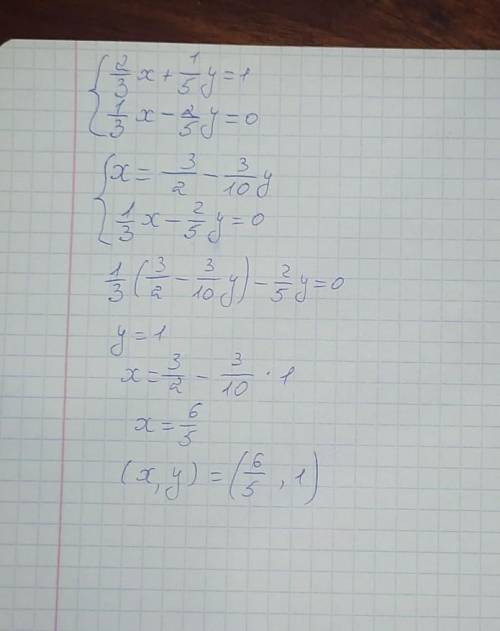 { 2/3 x + 1/5 y = 1
1/3 x - 2/5 y = 0
{ x = 3/2 - 3/10 y
1/3 x - 2/5 y = 0
1/3 (3/2 - 3/10 y) - 2/5 y = 0
y = 1
x = 3/2 - 3/10 · 1
x = 6/5
(x, y) = (6/5, 1)